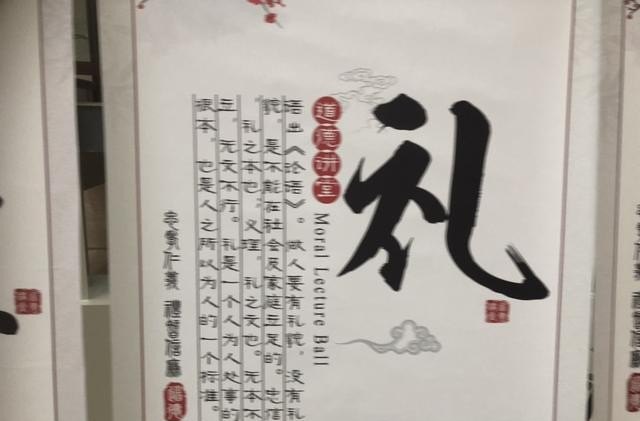 礼
道德讲堂
Moral Lecture Ball
语出《论语》。做人要有礼貌，没有礼
貌，是不能在社会及家庭立足的。忠信
，礼之本也；义理，礼之文也。无本不
立，无文不行。礼是一个人为人处事的
根本。也是人之所以为人的一个标准。
忠孝仁义 禮智信廉